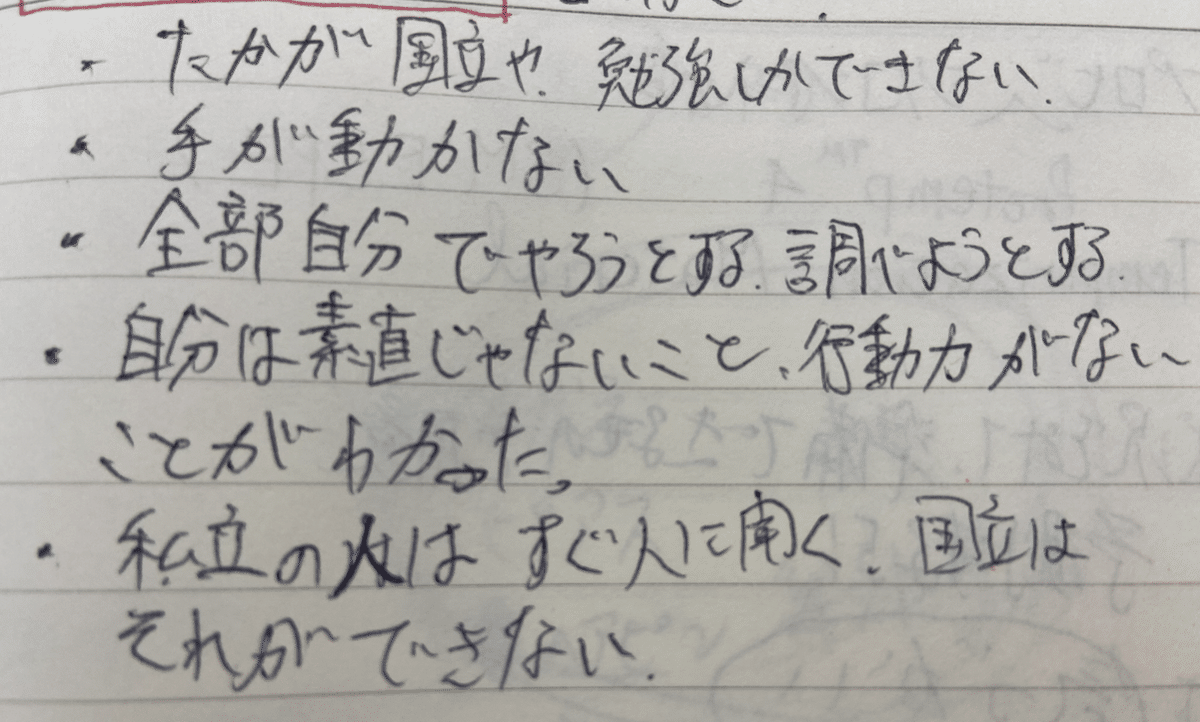 ・たかが国立や。勉強しかできない.
・手が動かない
・全部自分でやろうとする. 調べようとする.
・自分は素直じゃないこと、行動力がない
ことがわかった。
・私立の人はすぐ人に聞く. 国立は
それができない.